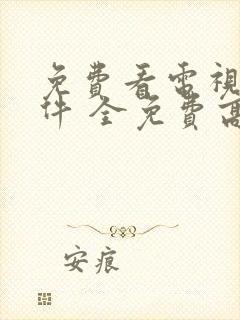 免費看電視
件 全免費高
安痕